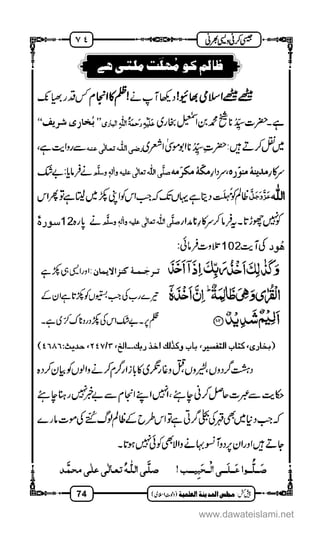 جیسی کرنی ویسی بھرنی
٧٤
ظالِم کو مُہلَت ملتی ہے
میٹھے میٹھے اسلامی بھائیو! دیکھا آپ نے! ظلم کا انجام کس قدر بھیانک
ہے۔ حضرت سیِّدُنا شیخ محمد بن اسمٰعیل بخاری عَلَیْہِ رَحْمَۃُ اللہِ الباری "بُخارِی شریف"
میں نقل کرتے ہیں: حضرت سیِّدُنا ابوموسیٰ اشعری رضی اللہ تعالٰی عنہ سے روایت ہے،
سرکارِ مدینۂ منوّرہ، سردارِ مکّۂ مکرّمہ صلَّی اللہ تعالٰی علیہ واٰلہٖ وسلَّم نے فرمایا: بے شک
اللہ عَزَّوَجَلَّ ظالم کو مُہلَت دیتا ہے یہاں تک کہ جب اس کو اپنی پکڑ میں لیتا ہے تو پھر اس
کو نہیں چھوڑتا۔ یہ فرما کر سرکارِ نامدار صلَّی اللہ تعالٰی علیہ واٰلہٖ وسلَّم نے پارہ 12 سورۃُ
ھُود کی آیت 102 تلاوت فرمائی:
وَ كَذٰلِكَ اَخْذُ رَبِّكَ اِذَاۤ اَخَذَ
الْقُرٰى وَ هِیَ ظَالِمَةٌؕ-اِنَّ اَخْذَهٗۤ
اَلِیْمٌ شَدِیْدٌ(۱۰۲)
ترجَمۂ کنز الایمان: اور ایسی ہی پکڑ ہے
تیرے رب کی جب بستیوں کو پکڑتا ہے ان کے
ظلم پر۔ بے شک اس کی پکڑ دردناک کرّی ہے۔
(بخاری، کتاب التفسیر، باب وکذلک اخذ ربک۔۔۔الخ، ٢٤٧/٣، حدیث:٤٦٨٦)
دہشت گردوں، لٹیروں، قتل و غارتگری کا بازار گرم کرنے والوں کو بیان کردہ
حکایت سے عبرت حاصل کرنی چاہئے، انہیں اپنے انجام سے بے خبر نہیں رہنا چاہئے
کہ جب دنیا میں بھی قہر کی بجلی گرتی ہے تو اس طرح کے ظالم لوگ کتّے کی موت مارے
جاتے ہیں اور ان پر دو آنسو بہانے والا بھی کوئی نہیں ہوتا۔
صَلُّوا عَلَی الْحَبِیب ! صلَّی اللہُ تعالٰی علٰی محمَّد
پیش کش: مجلس المدینة العلمیة (دعوتِ اسلامی)
74
www.dawateislami.net